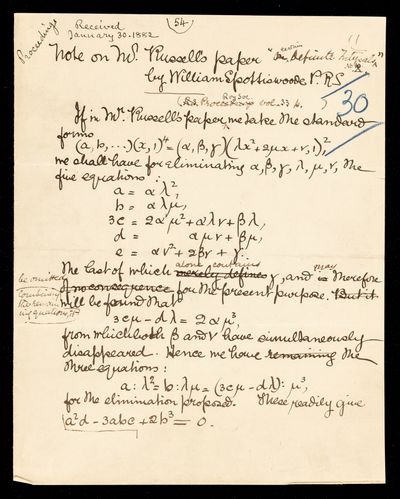 Proceedings
Received
January 30. 1882
(54)
Note on Mr. Russell's paper "On certain Definite Integrals"
by William Spottiswoode P.R.S.
Proceedings vol. 33
30
If in Mr. Russell's paper, we take the standard
forms
(a, b, ...)(x, 1)⁴ = (α, β, γ)(λx² + 2μx + ν, 1)²,
we shall have for eliminating α, β, γ, λ, μ, ν, the
five equations :
a = αλ²,
b = αλμ,
3c = 2αμ² + αλν + βλ,
d = αμν + βμ,
e = αν² + 2βν + γ :
the last of which alone contains merely defines γ, and is may therefore
of no consequence for the present purpose. But it
be omitted
Combining
the remain-
ing equations, it
will be found that
3cμ - dλ = 2αμ³,
from which both β and ν have simultaneously
disappeared. Hence we have remaining the
three equations :
a : λ² = b : λμ = (3cμ - dλ) : μ³,
for the elimination proposed. These readily give
a²d - 3abc + 2b³ = 0.